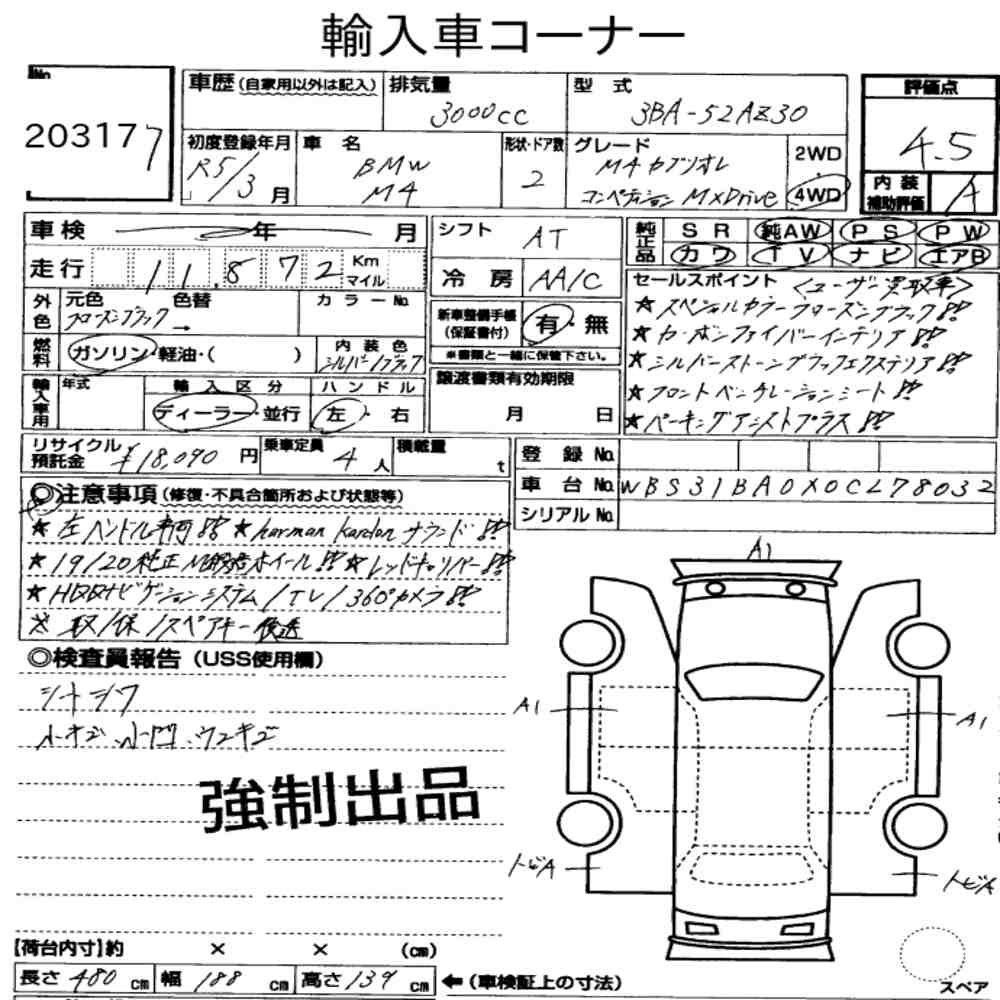 輸入車コーナー
No
203177
車歴 (自家用以外は記入)
排気量
3000cc
型 式
3BA-52AZ30
評価点
4.5
初度登録年月
R5/3 月
車 名
BMW
M4
形状・ドア数
2
グレード
M4 カブリオレ
コンペティション MxDrive
2WD
4WD
内装補助評価
A
車検 年 月
シフト
AT
純正品
SR 純AW PS PW
カワ TV ナビ エアB
走行 11,872 Km マイル
冷房
AA/C
セールスポイント <ユーザー買取車>
外色
元色 色替
フローズンブラック →
カラーNo
新車整備手帳
(保証書付)
有・無
★スペシャルカラーフローズンブラック!!
★カーボンファイバーインテリア!!
燃料
ガソリン・軽油・( )
内装色
シルバー/ブラック
※書類と一緒に保管下さい。
★シルバーストーンブラックエクステリア!!
輸入車用
年式
輸入区分
ディーラー・並行
ハンドル
左・右
譲渡書類有効期限
月 日
★フロントベンチレーションシート!!
★パーキングアシストプラス!!
リサイクル預託金 ¥18,090 円
乗車定員 4 人
積載量 t
登録No.
車台No. WBS31BA0X0CL78032
シリアルNo.
◎注意事項 (修復・不具合箇所および状態等)
★左ハンドル車両!! ★harman kardonサウンド!!
★19/20純正M鍛造ホイール!! ★レッドキャリパー!!
★HDDナビゲーションシステム/TV/360°カメラ!!
※取/保/スペアキー後送
◎検査員報告 (USS使用欄)
シートシワ
小キズ 小凹 ウスキズ
強制出品
A1
A1
A1
トビA
トビA
【荷台内寸】約 × × (cm)
長さ 480 cm 幅 188 cm 高さ 139 cm ←(車検証上の寸法)
スペア